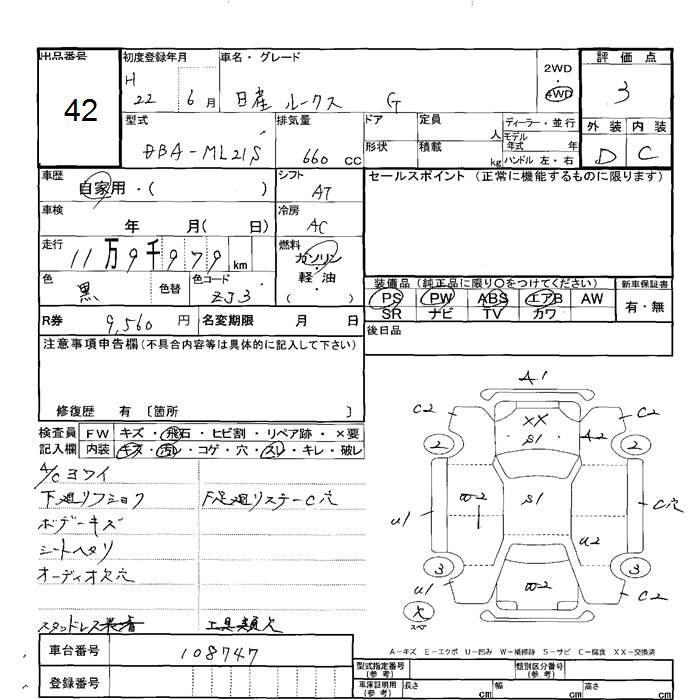 出品番号
42
初度登録年月
H 22 6月
車名・グレード
日産 ルークス G
2WD
4WD
評価点
3
外装 内装
D C
型式
DBA-ML21S
排気量
660 CC
ドア
形状
定員
人
積載
kg
ディーラー・並行
モデル年式 年
ハンドル 左・右
車歴
自家用・( )
シフト
AT
セールスポイント (正常に機能するものに限ります)
車検
年 月( 日)
冷房
AC
走行
11万9千979km
燃料
ガソリン
軽・油
( )
色
黒
色替
色コード
ZJ3
装備品(純正品に限り○をつけてください)
PS PW ABS エアB AW
SR ナビ TV カワ
新車保証書
有・無
R券 9,560円
名変期限 月 日
後日品
注意事項申告欄(不具合内容等は具体的に記入して下さい)
修復歴 有〔箇所 〕
検査員記入欄
FW キズ・飛石・ヒビ割・リペア跡・×要
内装 キズ・汚レ・コゲ・穴・スレ・キレ・破レ
A/Cヨワイ
下廻リフショク
下足廻リステーC穴
ボデーキズ
シートヘタリ
オーディオ欠穴
スタッドレス装着
工具類欠
A1
C2
C2
XX
S1
A2
2
2
W2
S1
U1
C穴
U2
3
3
U1
W2
C2
欠
スペア
A-キズ E-エクボ U-凹み W-補修跡 S-サビ C-腐食 XX-交換済
車台番号
108747
登録番号
型式指定番号(参考)
類別区分番号(参考)
車庫証明用(参考)
長さ cm
幅 cm
高さ cm